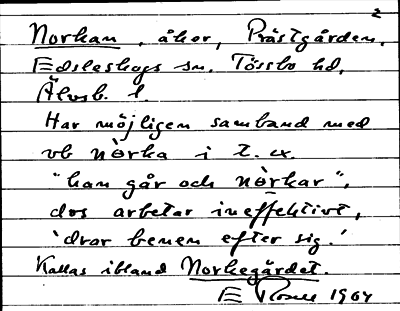 2
Norkan, åker, Prästgården,
Edsleskogs sn. Tössbo hd,
Älvsb. l.
Har möjligen samband med
vb nòrka i t. ex.
"han går och nòrkar",
dvs arbetar ineffektivt,
'drar benen efter sig.'
Kallas ibland Norkegärdet.
E 1964